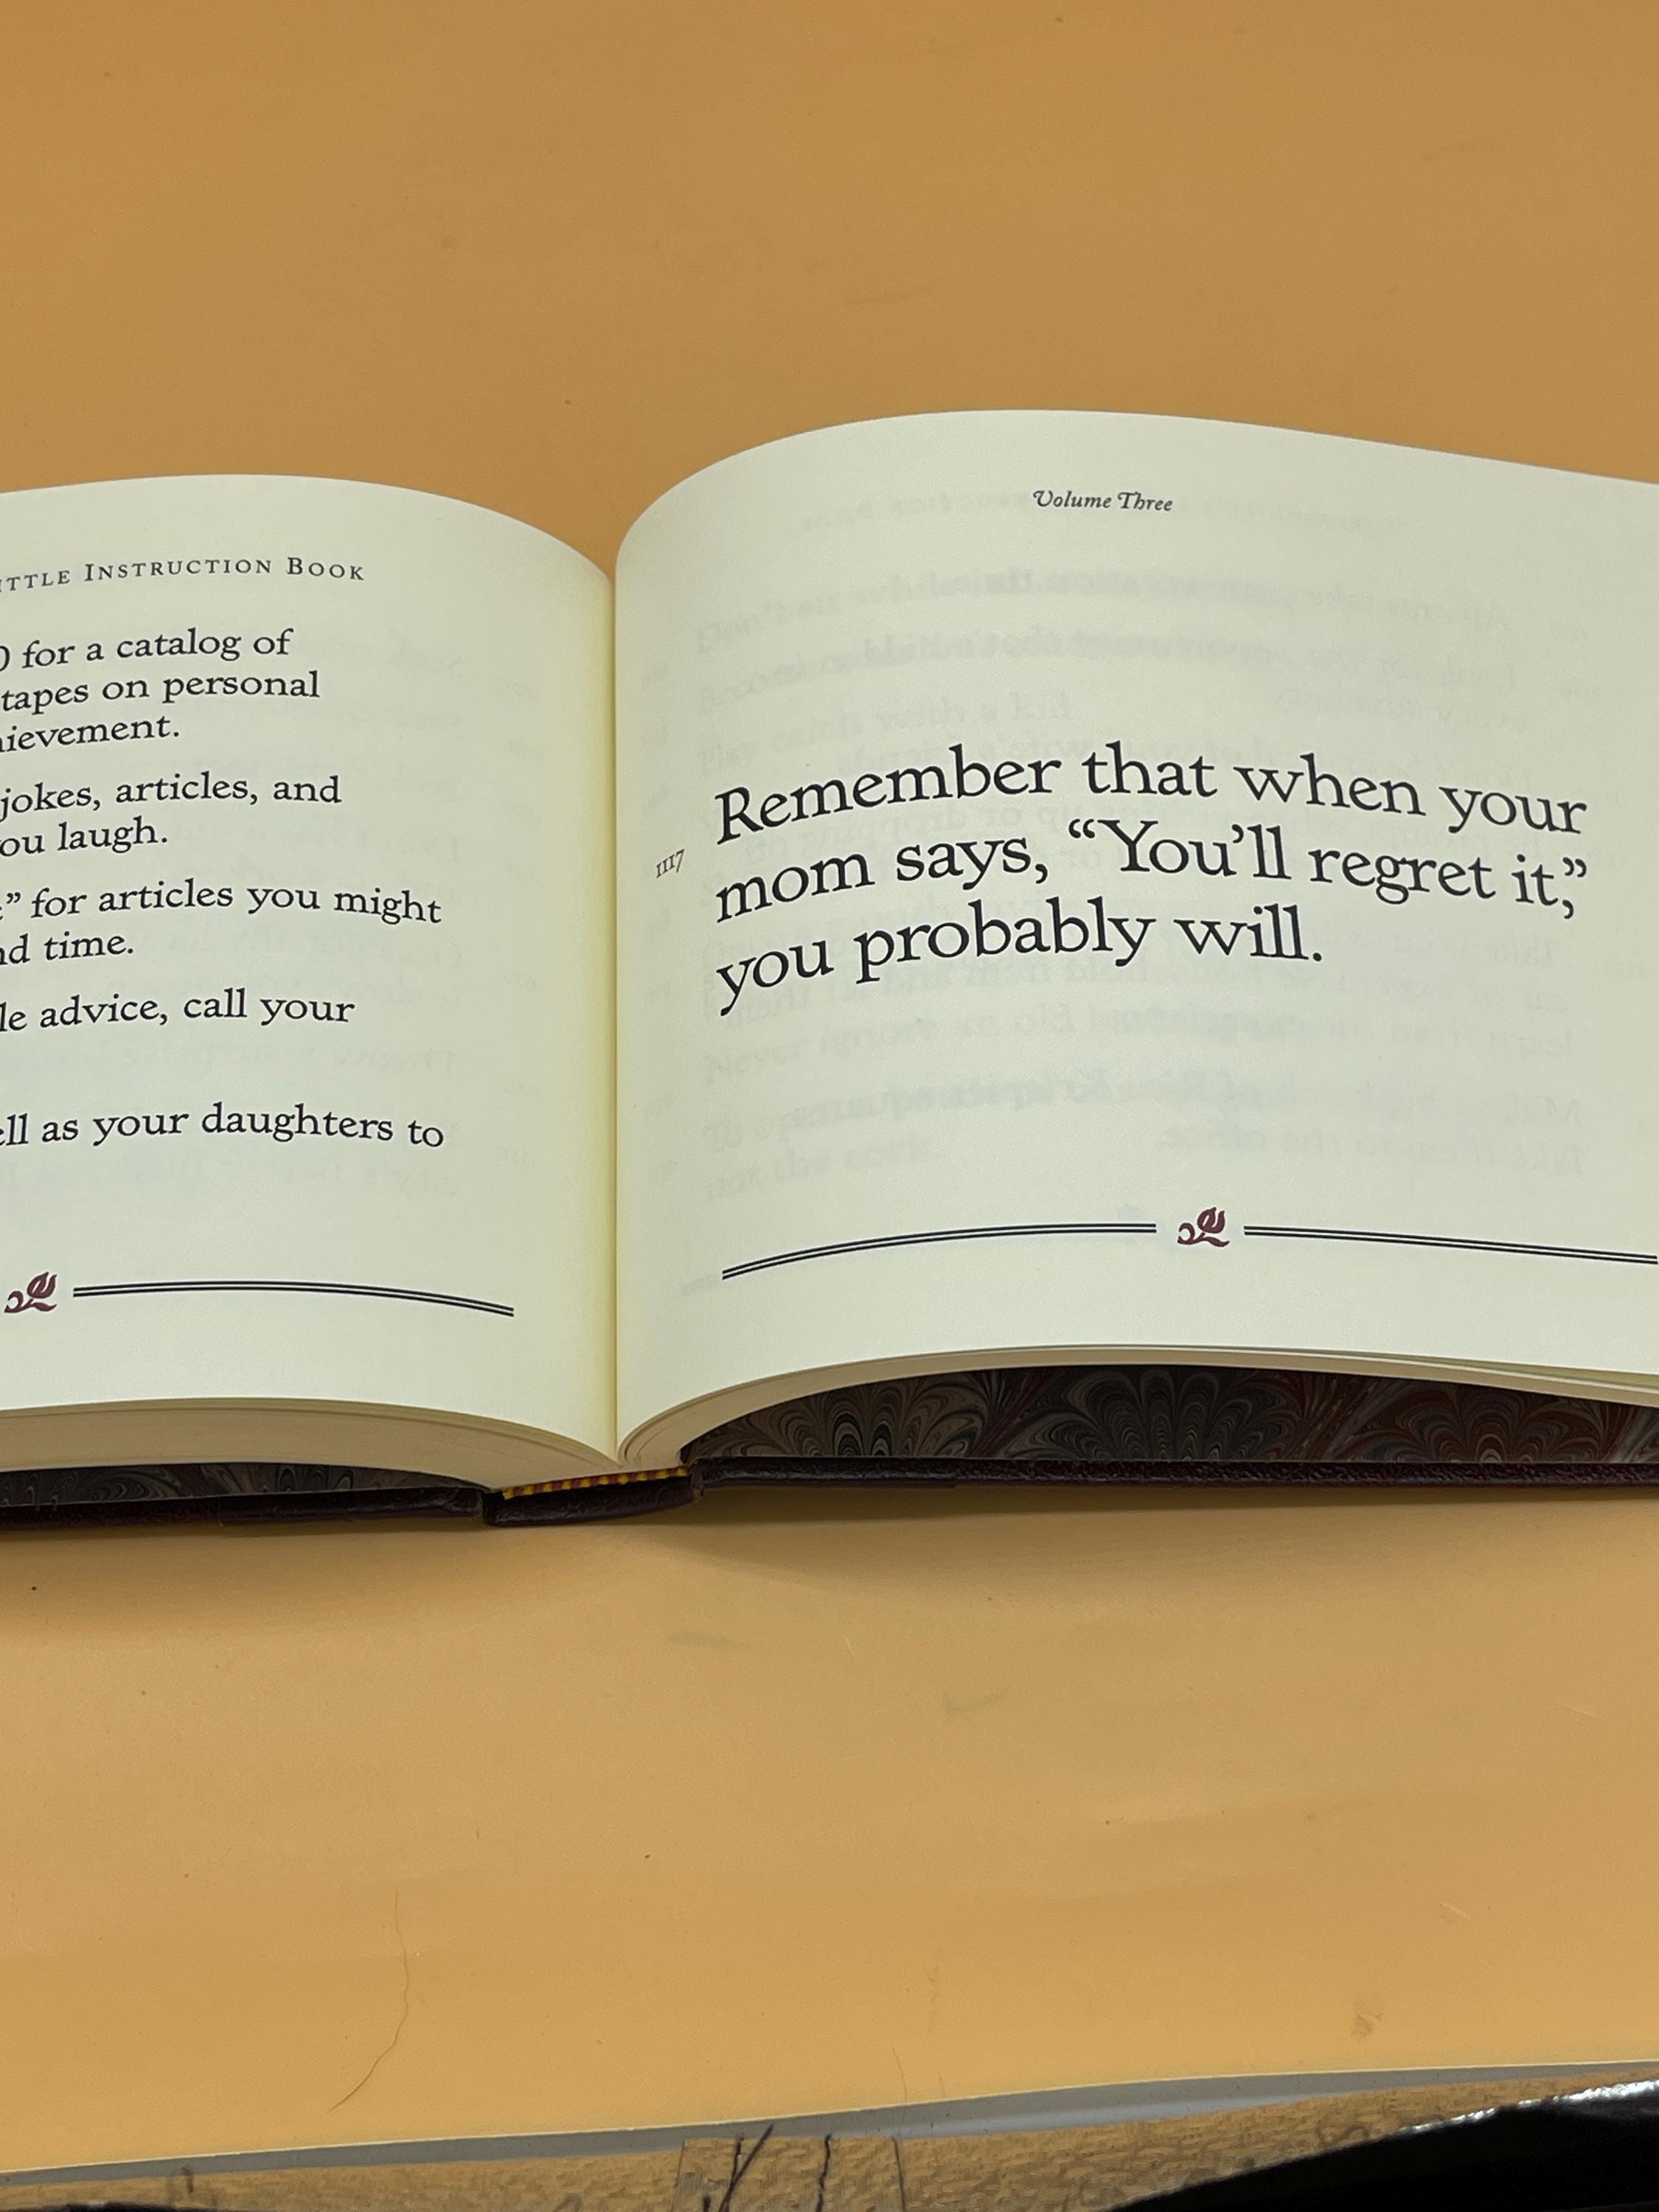 LITTLE INSTRUCTION BOOK
for a catalog of
tapes on personal
jokes, articles, and
laugh.
for articles you might
time.
advice, call your
as your daughters to
Volume Three
1117
Remember that when your
mom says, “You’ll regret it,”
you probably will.